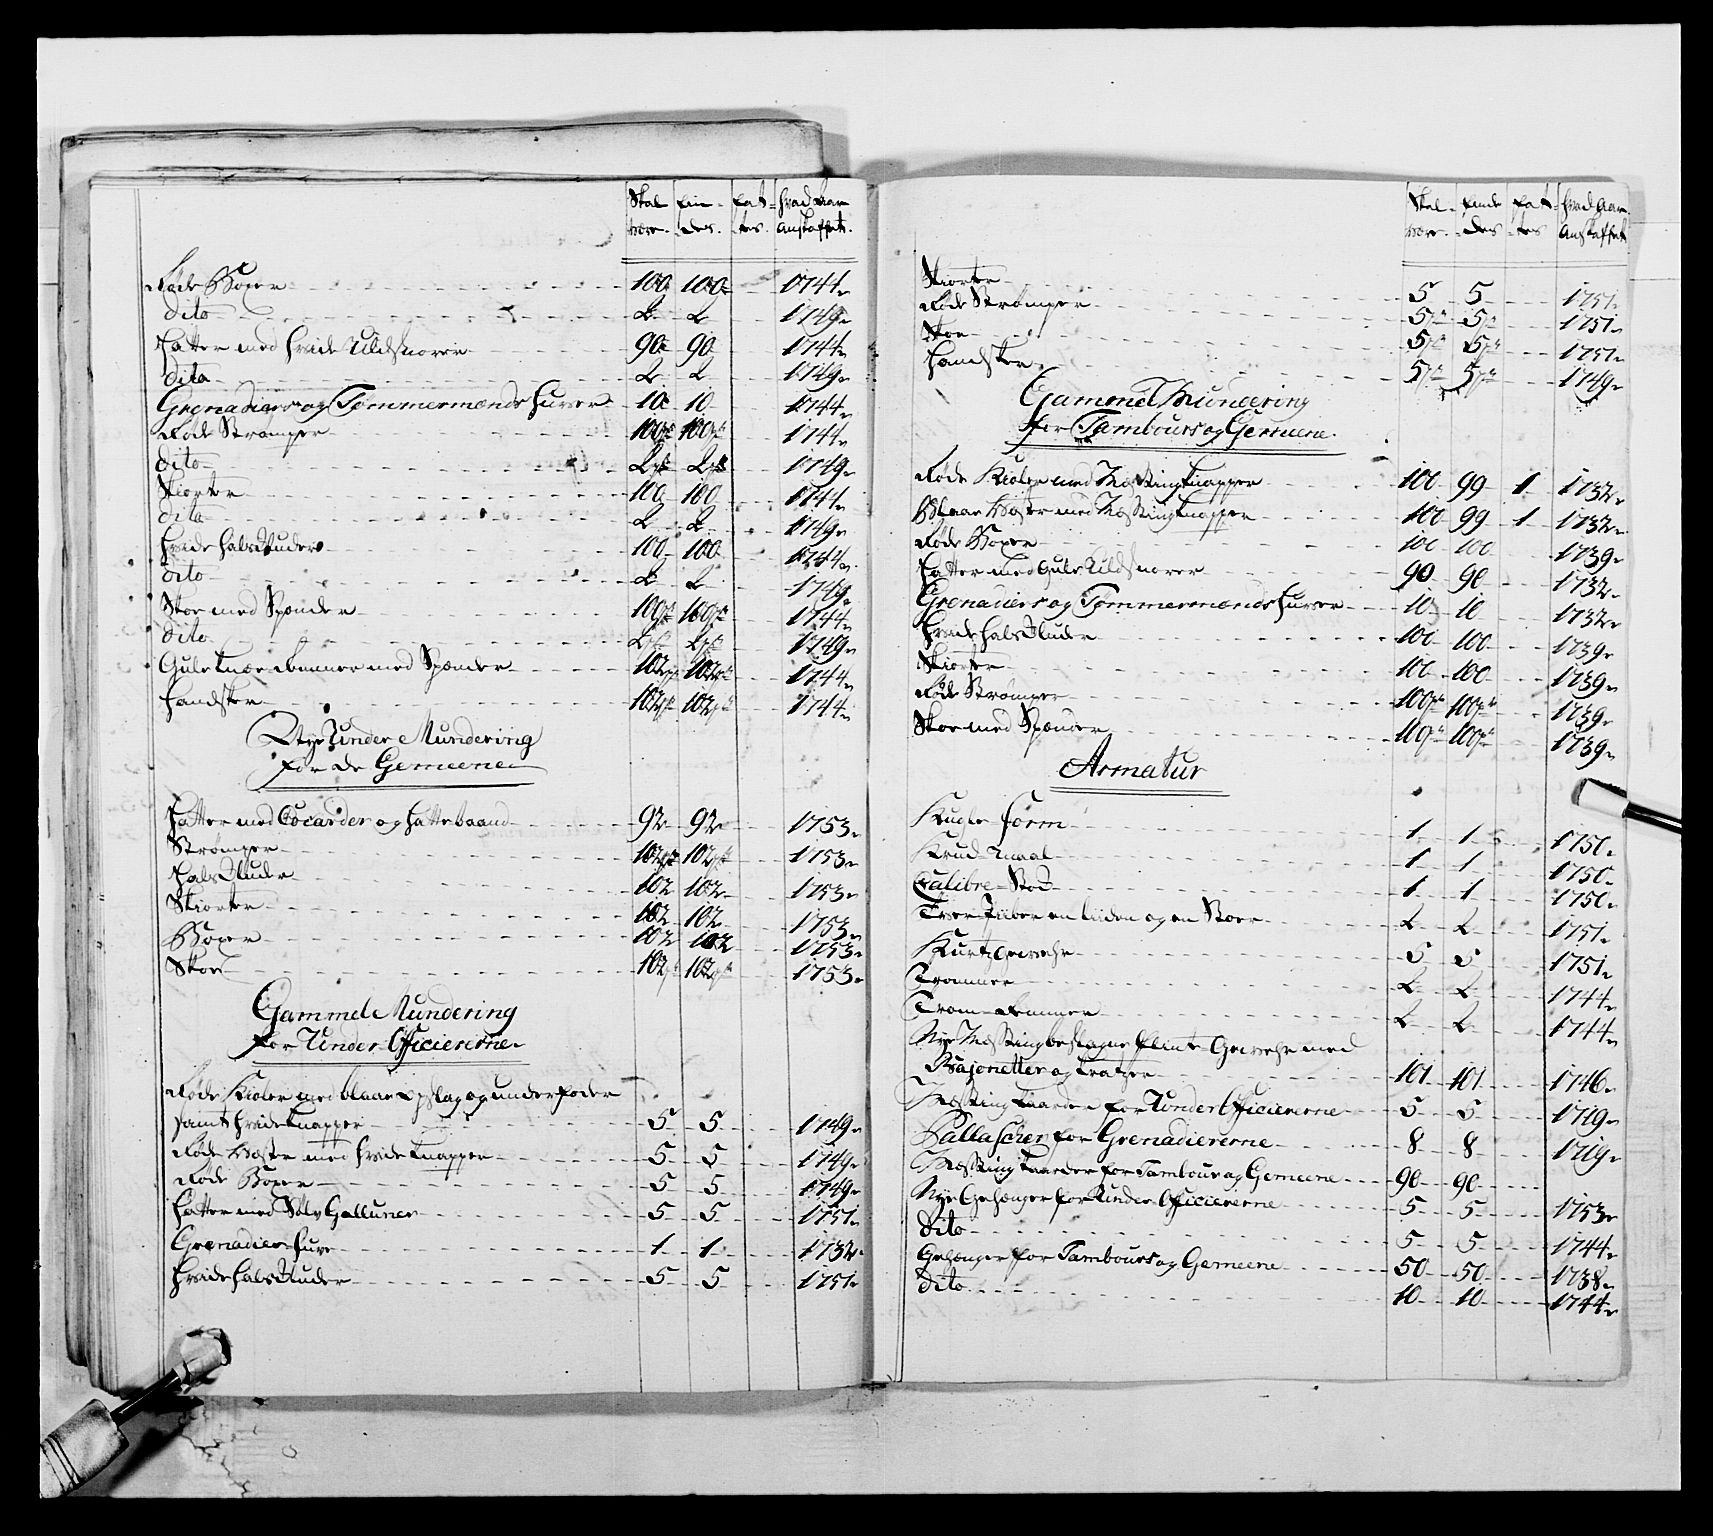 Skal Fin- Fat- Hvad Aar
være. des. tes Anskaffet.
Røde Boxer 100 100 1744
dito 2 2 1749
Hatter med Hvide Uldsnorer 90 90 1744
dito 2 2 1749
Grenadiers og Tømmermænds Huver 10 10 1744
Røde Strømper 100 pr 100 pr 1744
dito 2 pr 2 pr 1749
Skiorter 100 100 1744
dito 2 2 1749
Hvide Halsklude 100 100 1744
dito 2 2 1749
Skoe med Spænder 100 pr 100 pr 1744
dito 2 pr 2 pr 1749
Gule Knæ Remmer med Spænder 102 pr 102 pr 1744
Handsker 102 pr 102 pr 1744
Nye Under Mundering
for de Gemeene
Hatter med Cocarder og Hattebaand 92 92 1753
Strømper 102 pr 102 pr 1753
Halsklude 102 102 1753
Skiorter 102 102 1753
Boxer 102 102 1753
Skoe 102 pr 102 pr 1753
Gammel Mundering
for Under Officiererne
Røde Kioler med blaae Opslag og underfoder
samt Hvide Knapper 5 5 1749
Røde Veste med Hvide Knapper 5 5 1749
Røde Boxer 5 5 1749
Hatter med Sølv Galluner 5 5 1751
Grenadier Huve 1 1 1732
Hvide Halsklude 5 5 1751
Skal Finde Fat- Hvad Aar
være. des tes Anskaffet
Skiorter 5 5 1751
Røde Strømper 5 pr 5 pr 1751
Skoe 5 pr 5 pr 1751
Handsker 5 pr 5 pr 1749
Gammel Mundering
for Tambours og Gemeene
Røde Kioler med Messing Knapper 100 99 1 1732
Blaae Veste med Messing Knapper 100 99 1 1732
Røde Boxer 100 100 1739
Hatter med Gule Uldsnorer 90 90 1732
Grenadiers og Tømmermænds Huver 10 10 1732
Hvide Halsklude 100 100 1739
Skiorter 100 100 1739
Røde Strømper 100 pr 100 pr 1739
Skoe med Spænder 100 pr 100 pr 1739
Armatur
Kugle Form 1 1 1750
Krud-Maal 1 1 1750
Calibre-Stod 1 1 1750
Tver Piber en liiden og en Stoer 2 2 1751
Kurtzgewehr 5 5 1751
Trommer 2 2 1744
Trom-Remmer 2 2 1744
Nye Messingbeslagne Flinte Gewehr med
Bajonetter og Kratzer 101 101 1746
Messing Kaarder for Under Officiererne 5 5 1719
Pallascher for Grenadiererne 8 8 1719
Messing Kaarder for Tambour og Gemeene 90 90
Nye Gehænger for Under Officiererne 5 5 1753
dito 5 5 1744
Gehænger for Tambours og Gemeene 50 50 1738
dito 10 10 1744